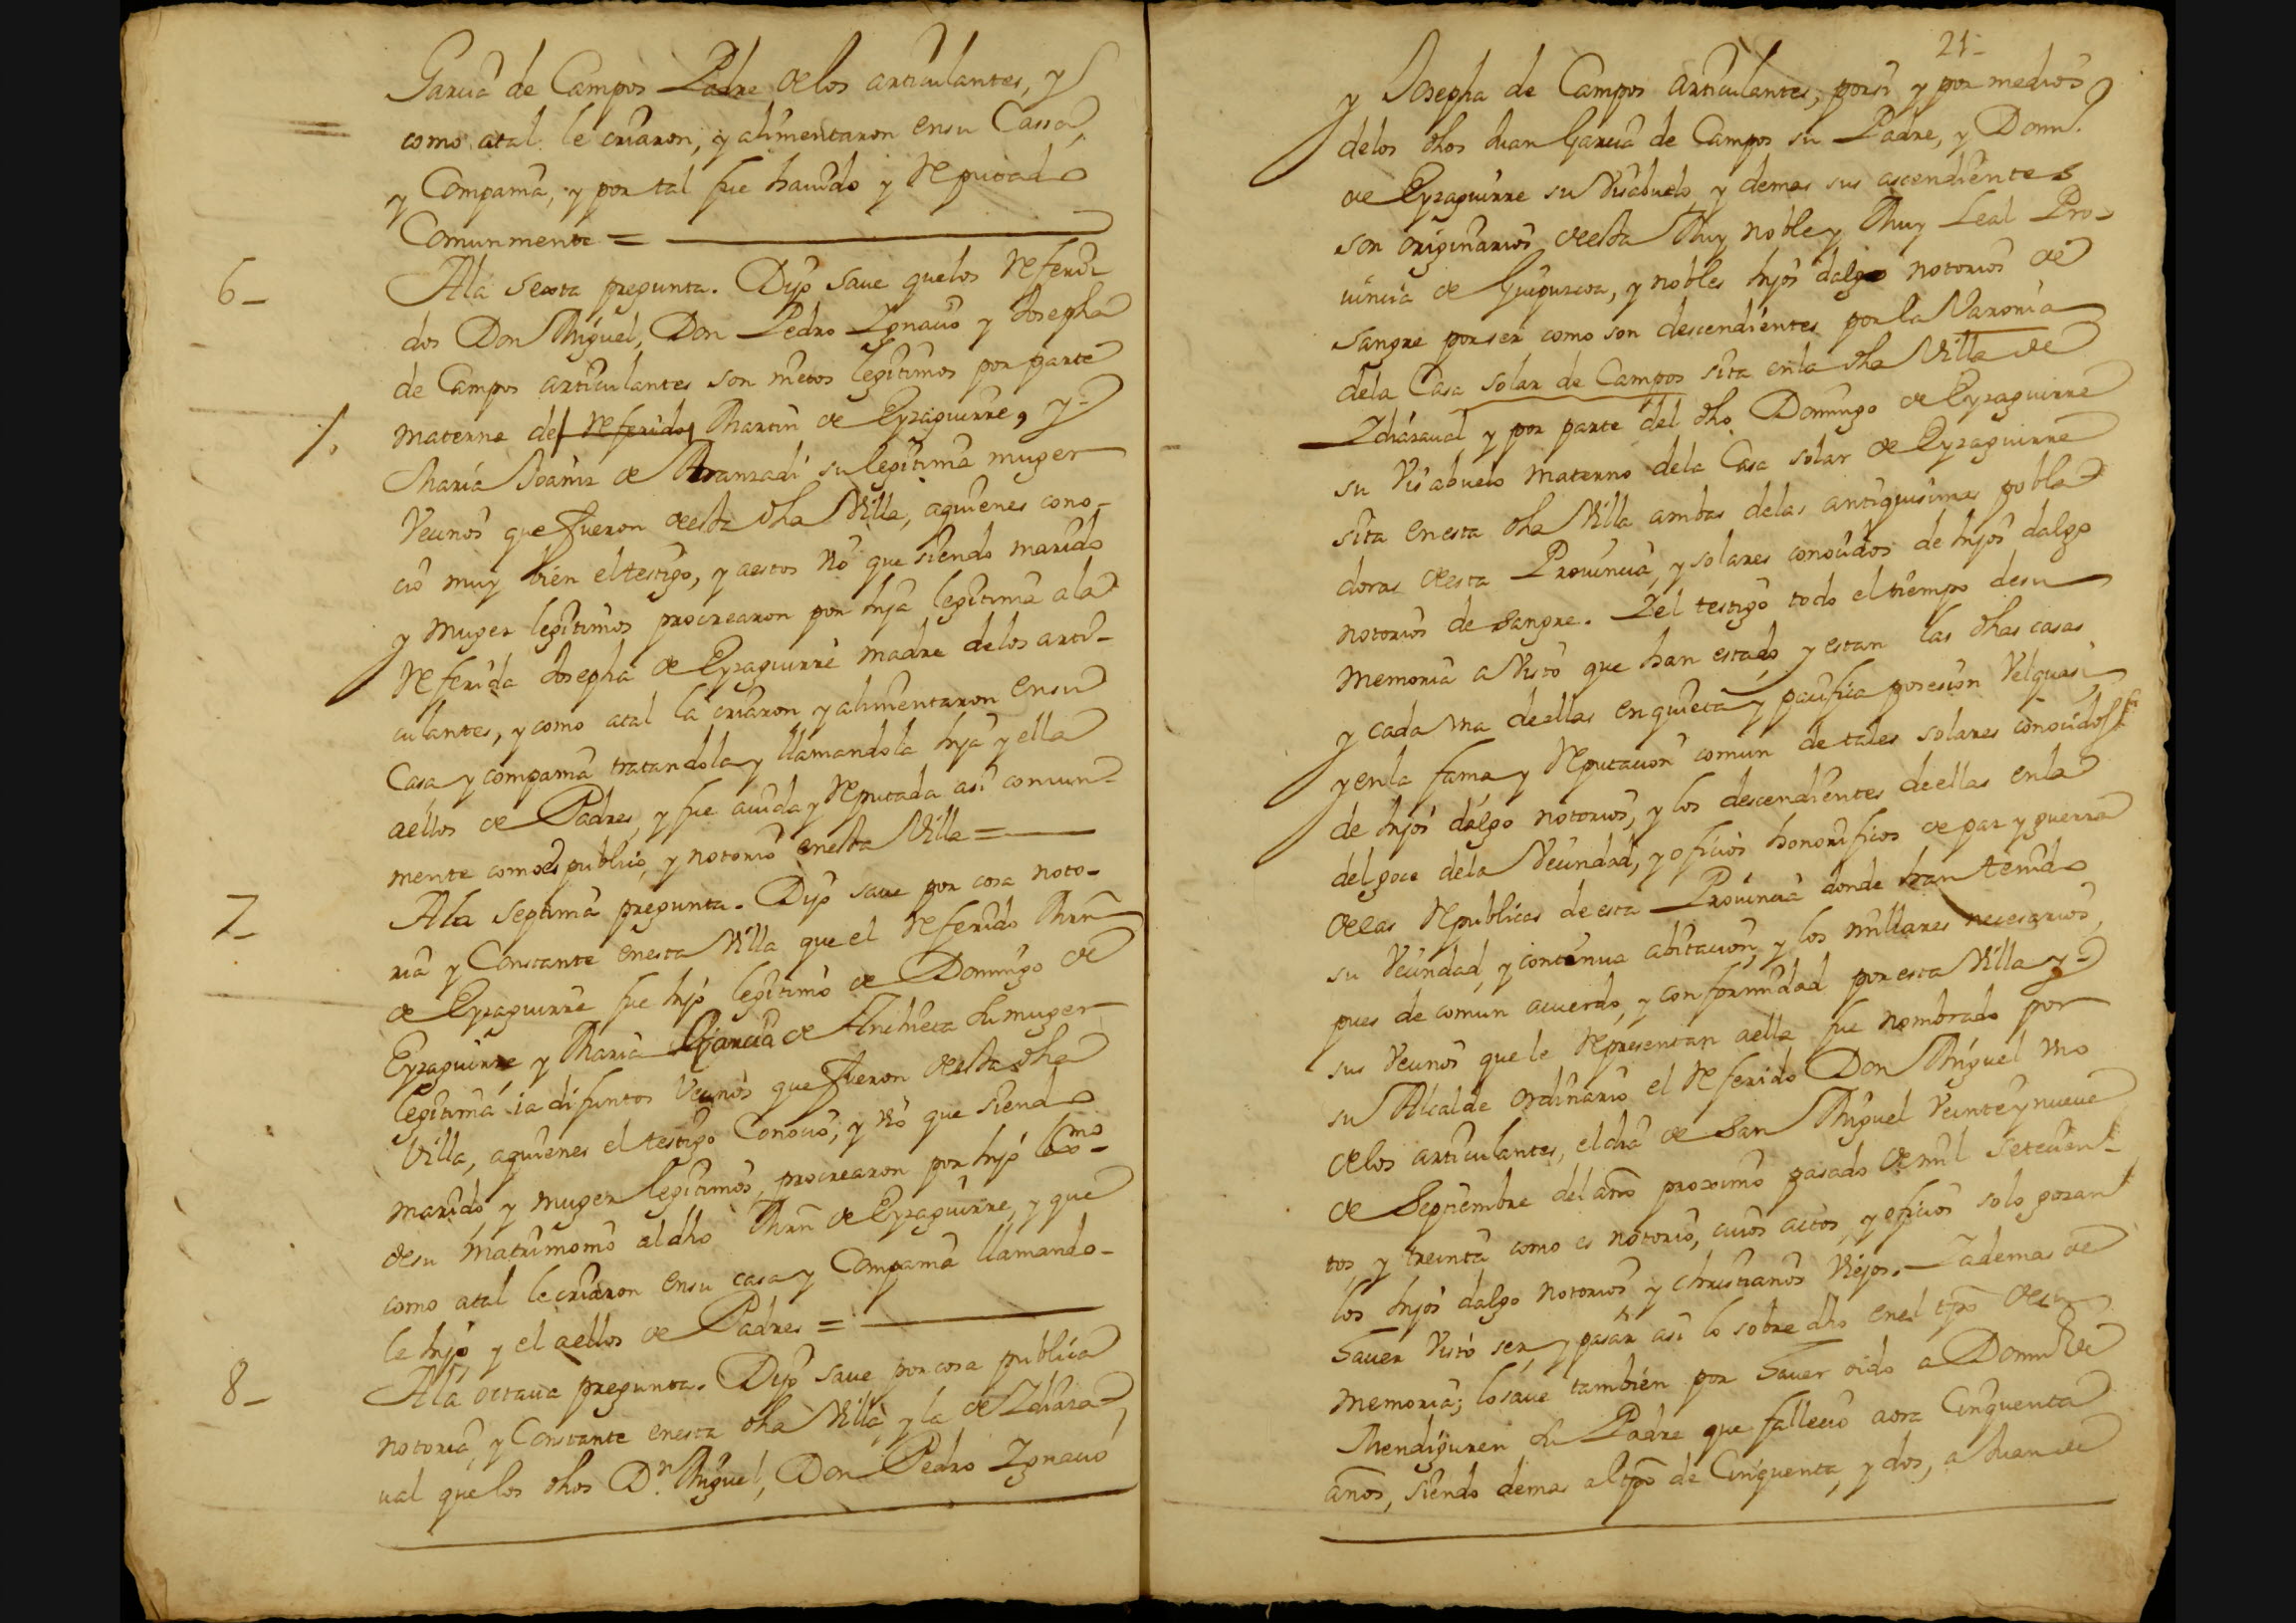 Garcia de Campos Padre delos articulantes, y
como atal le criaron, y alimentaron ensu Cassa,
y Compania, y por tal fue hauido y Reputado
Comunmente =
6_ Ala sexta pregunta. Dijo saue quelos Referi
dos Don Miguel, Don Pedro Ygnacio y Josepha
de Campos articulantes son nietos legitimos por parte
materna del Referido Martin de Eyzaguirre, y
Maria Joaniz de Aranzadi su legitima muger
Vecinos que fueron desta dha Villa, aquienes cono-
cio muy bien el testigo, y aestos vio que siendo marido
y muger legitimos procrearon por hija legitima ala
Referida Josepha de Eyzaguirre madre delos arti-
culantes, y como atal la criaron y alimentaron ensu
Casa y compania tratandola y llamandola hija y ella
aellos de Padres, y fue auida y Reputada asi comun-
mente como es publico, y notorio enesta Villa =
7_ Ala septima pregunta. Dijo saue por cosa noto-
ria y Constante enesta Villa que el Referido Mrn
de Eyzaguirre fue hijo legitimo de Domingo de
Eyzaguirre y Maria Garcia de Anchieta su muger
legitima ia difuntos Vecinos que fueron desta dha
Villa, aquienes el testigo Conocio, y vio que siendo
marido y muger legitimos, procrearon por hijo lexmo
desu matrimonio aldho Mrn de Eyzaguirre, y que
como atal le criaron ensu casa y Compania llamando-
le hijo y el aellos de Padres =
8_ Ala octaua pregunta. Dijo saue por cosa publica
notoria, y Constante enesta dha Villa, y la de Zdiaza-
ual quelos dhos Dn. Miguel, Don Pedro Ygnacio
21_
y Josepha de Campos articulantes, porsi y por medios
delos dhos Juan Garcia de Campos su Padre, y Domo.
de Eyzaguirre su Visabuelo, y demas sus ascendientes
son originarios desta Muy noble y Muy Leal Pro-
uincia de Guipuzcoa, y nobles hijos dalgo notorios de
sangre por ser como son descendientes por la Varonia
dela Casa solar de Campos sita enla dha Villa de
Zdiazaual y por parte del dho Domingo de Eyzaguirre
su Visabuelo materno dela Casa solar de Eyzaguirre
sita enesta dha Villa ambas delas antiquisimas pobla
doras desta Prouincia, y solares conocidos de hijos dalgo
notorios de sangre. Yel testigo todo el tiempo desu
memoria a visto que han estado, y estan las dhas casas
y cada vna deellas enquieta y pacifica posesion Velquasi
y enla fama, y Reputacion comun de tales solares conocidos
de hijos dalgo notorios, y los descendientes deellas enla
del goce dela Vecindad, y oficios honorificos de paz y guerra
delas Republicas de esta Prouincia donde han tenido
su Vecindad, y continua abitacion, y los millares necesarios,
pues de comun acuerdo, y conformidad por esta Villa y
sus Vecinos que le Representan aella fue nombrado por
su Alcalde ordinario el Referido Don Miguel vno
delos articulantes, el dia de San Miguel Veinte y nueue
de Septiembre del año proximo pasado de mil setecien-
tos y treinta como es notorio, cuios actos, y oficios solo gozan
los hijos dalgo notorios y christianos Viejos. Yademas de
hauer visto ser, y pasar asi lo sobre dho enel tpo desu
memoria; lo saue tambien por hauer oido a Domo. de
Mendiguren su Padre que fallecio aora Cinquenta
años, siendo demas al tpo de Cinquenta, y dos, a Juan de